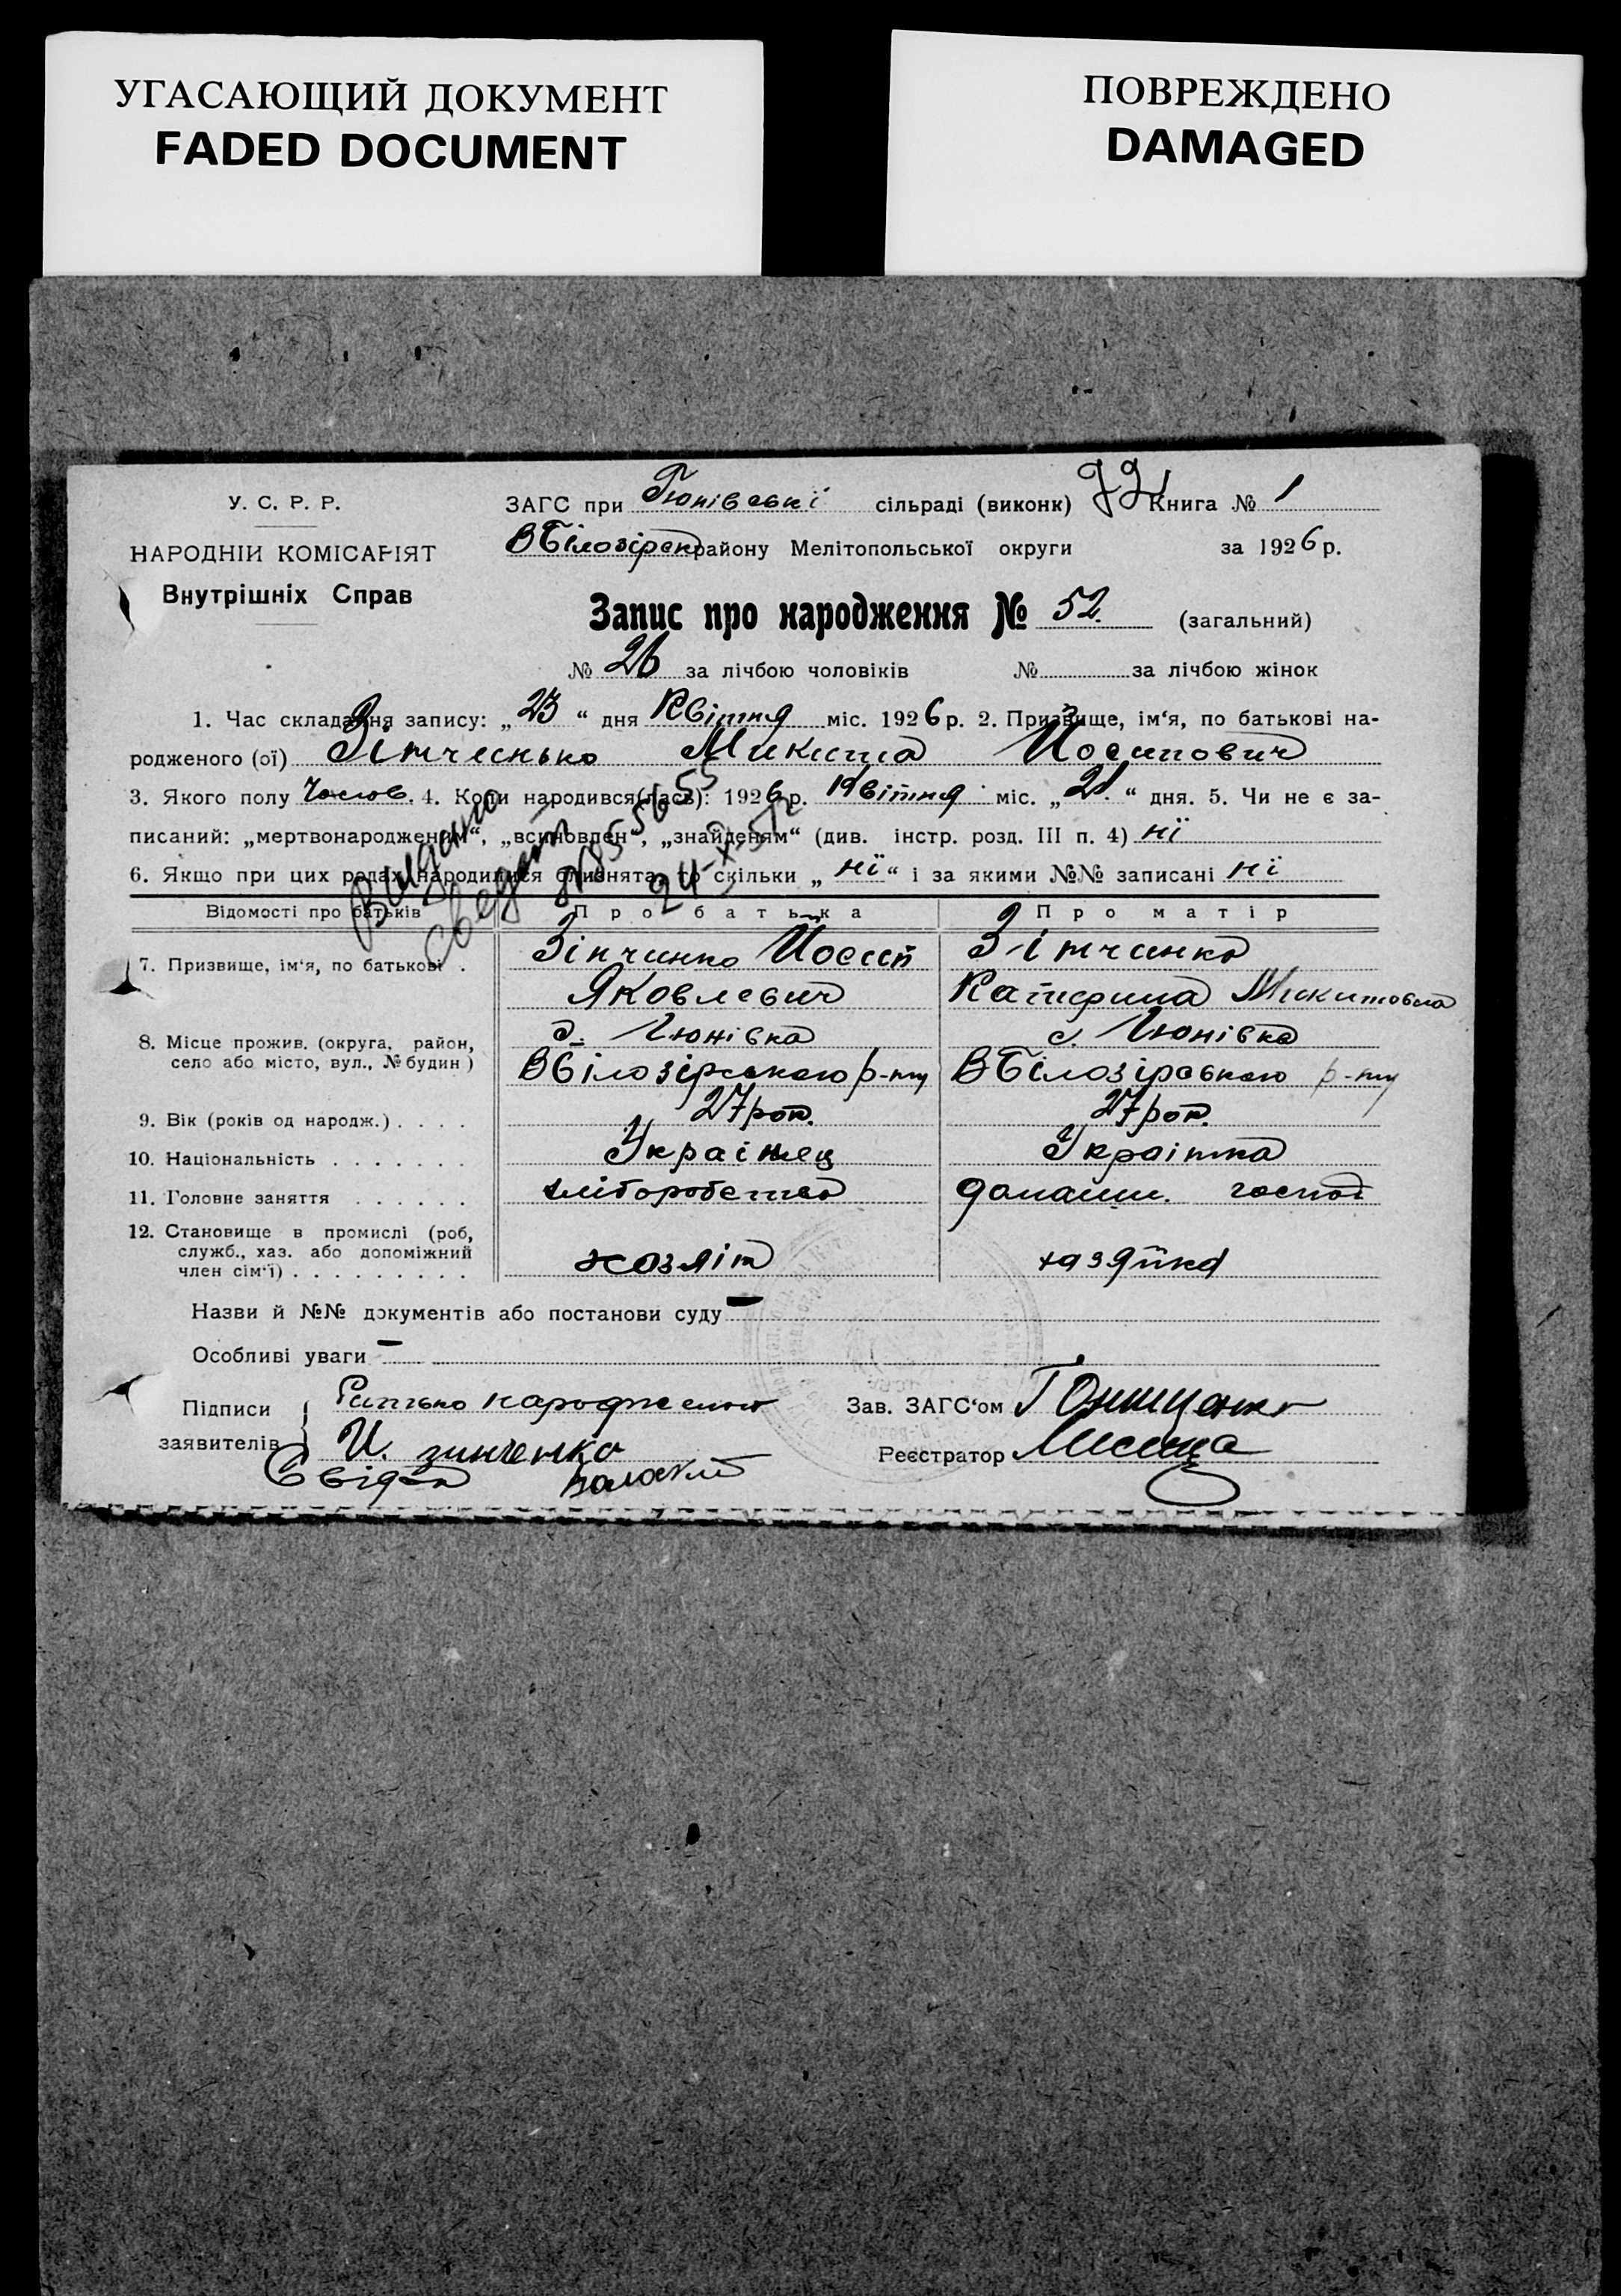 УГАСАЮЩИЙ ДОКУМЕНТ
FADED DOCUMENT
ПОВРЕЖДЕНО
DAMAGED
У. С. Р. Р.
НАРОДНІЙ КОМІСАРІЯТ
Внутрішніх Справ
ЗАГС при Гюнівські сільраді (виконк) Книга № 1
ВБілозірск району Мелітопольської округи за 1926 р.
Запис про народження № 52 (загальний)
№ 26 за лічбою чоловіків № за лічбою жінок
1. Час складання запису: „23“ дня Квітня міс. 1926 р. 2. Призвище, ім‘я, по батькові на-
родженого (ої) Зінченько Микита Йосипович
3. Якого полу Чолов. 4. Коли народився(лась): 1926 р. Квітня міс. „21.“ дня. 5. Чи не є за-
писаний: „мертвонародженим“, „всиновлен“, „знайденям“ (див. інстр. розд. III п. 4) ні
6. Якщо при цих родах народилися близнята, то скільки „ні“ і за якими №№ записані ні
Видано
свидет
24-X-51
Відомості про батьків Про батька Про матір
7. Призвище, ім‘я, по батькові . Зінчинко Йосип Зінчинко
Яковлевич Катерина Микитовна
8. Місце прожив. (округа, район, с. Гюнівка с. Гюнівка
село або місто, вул., № будин) ВБілозірського р-ну ВБілозірського р-ну
9. Вік (років од народж.) . . . . 27 рок. 27 рок.
10. Національність . . . . . . . Украінец Украінка
11. Головне заняття . . . . . . хліборобство домашн. господ
12. Становище в промислі (роб,
служб., хаз. або допоміжний
член сім‘ї) . . . . . . . . . хозяін хазяйка
Назви й №№ документів або постанови суду —
Особливі уваги —
Підписи
заявителів
народженого
И. зинченко
Свідок
Зав. ЗАГС‘ом Гонищенко
Реєстратор Лисиця